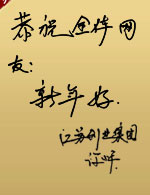 恭祝全体网
友:
新年好.
江苏创业集团